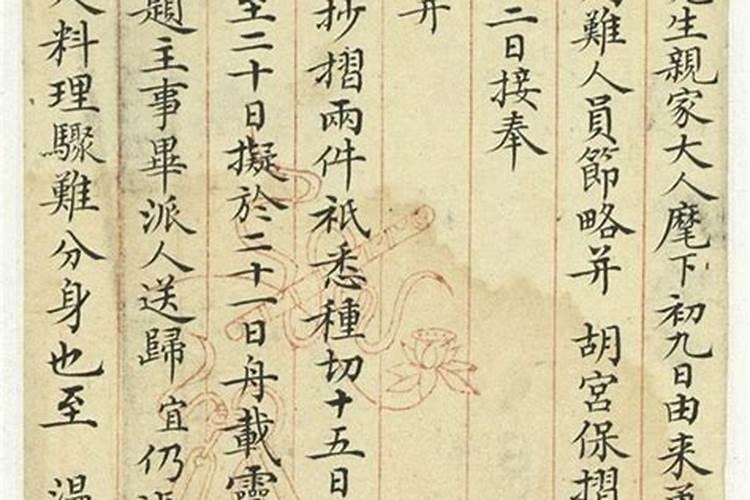 生親家大人麾下初九日由來
難人員節略并 胡宮保摺
二日接奉
并
抄摺兩件祇悉種切十五日
至二十日擬於二十一日舟載靈
題主事畢派人送歸宜仍
料理驟難分身也至